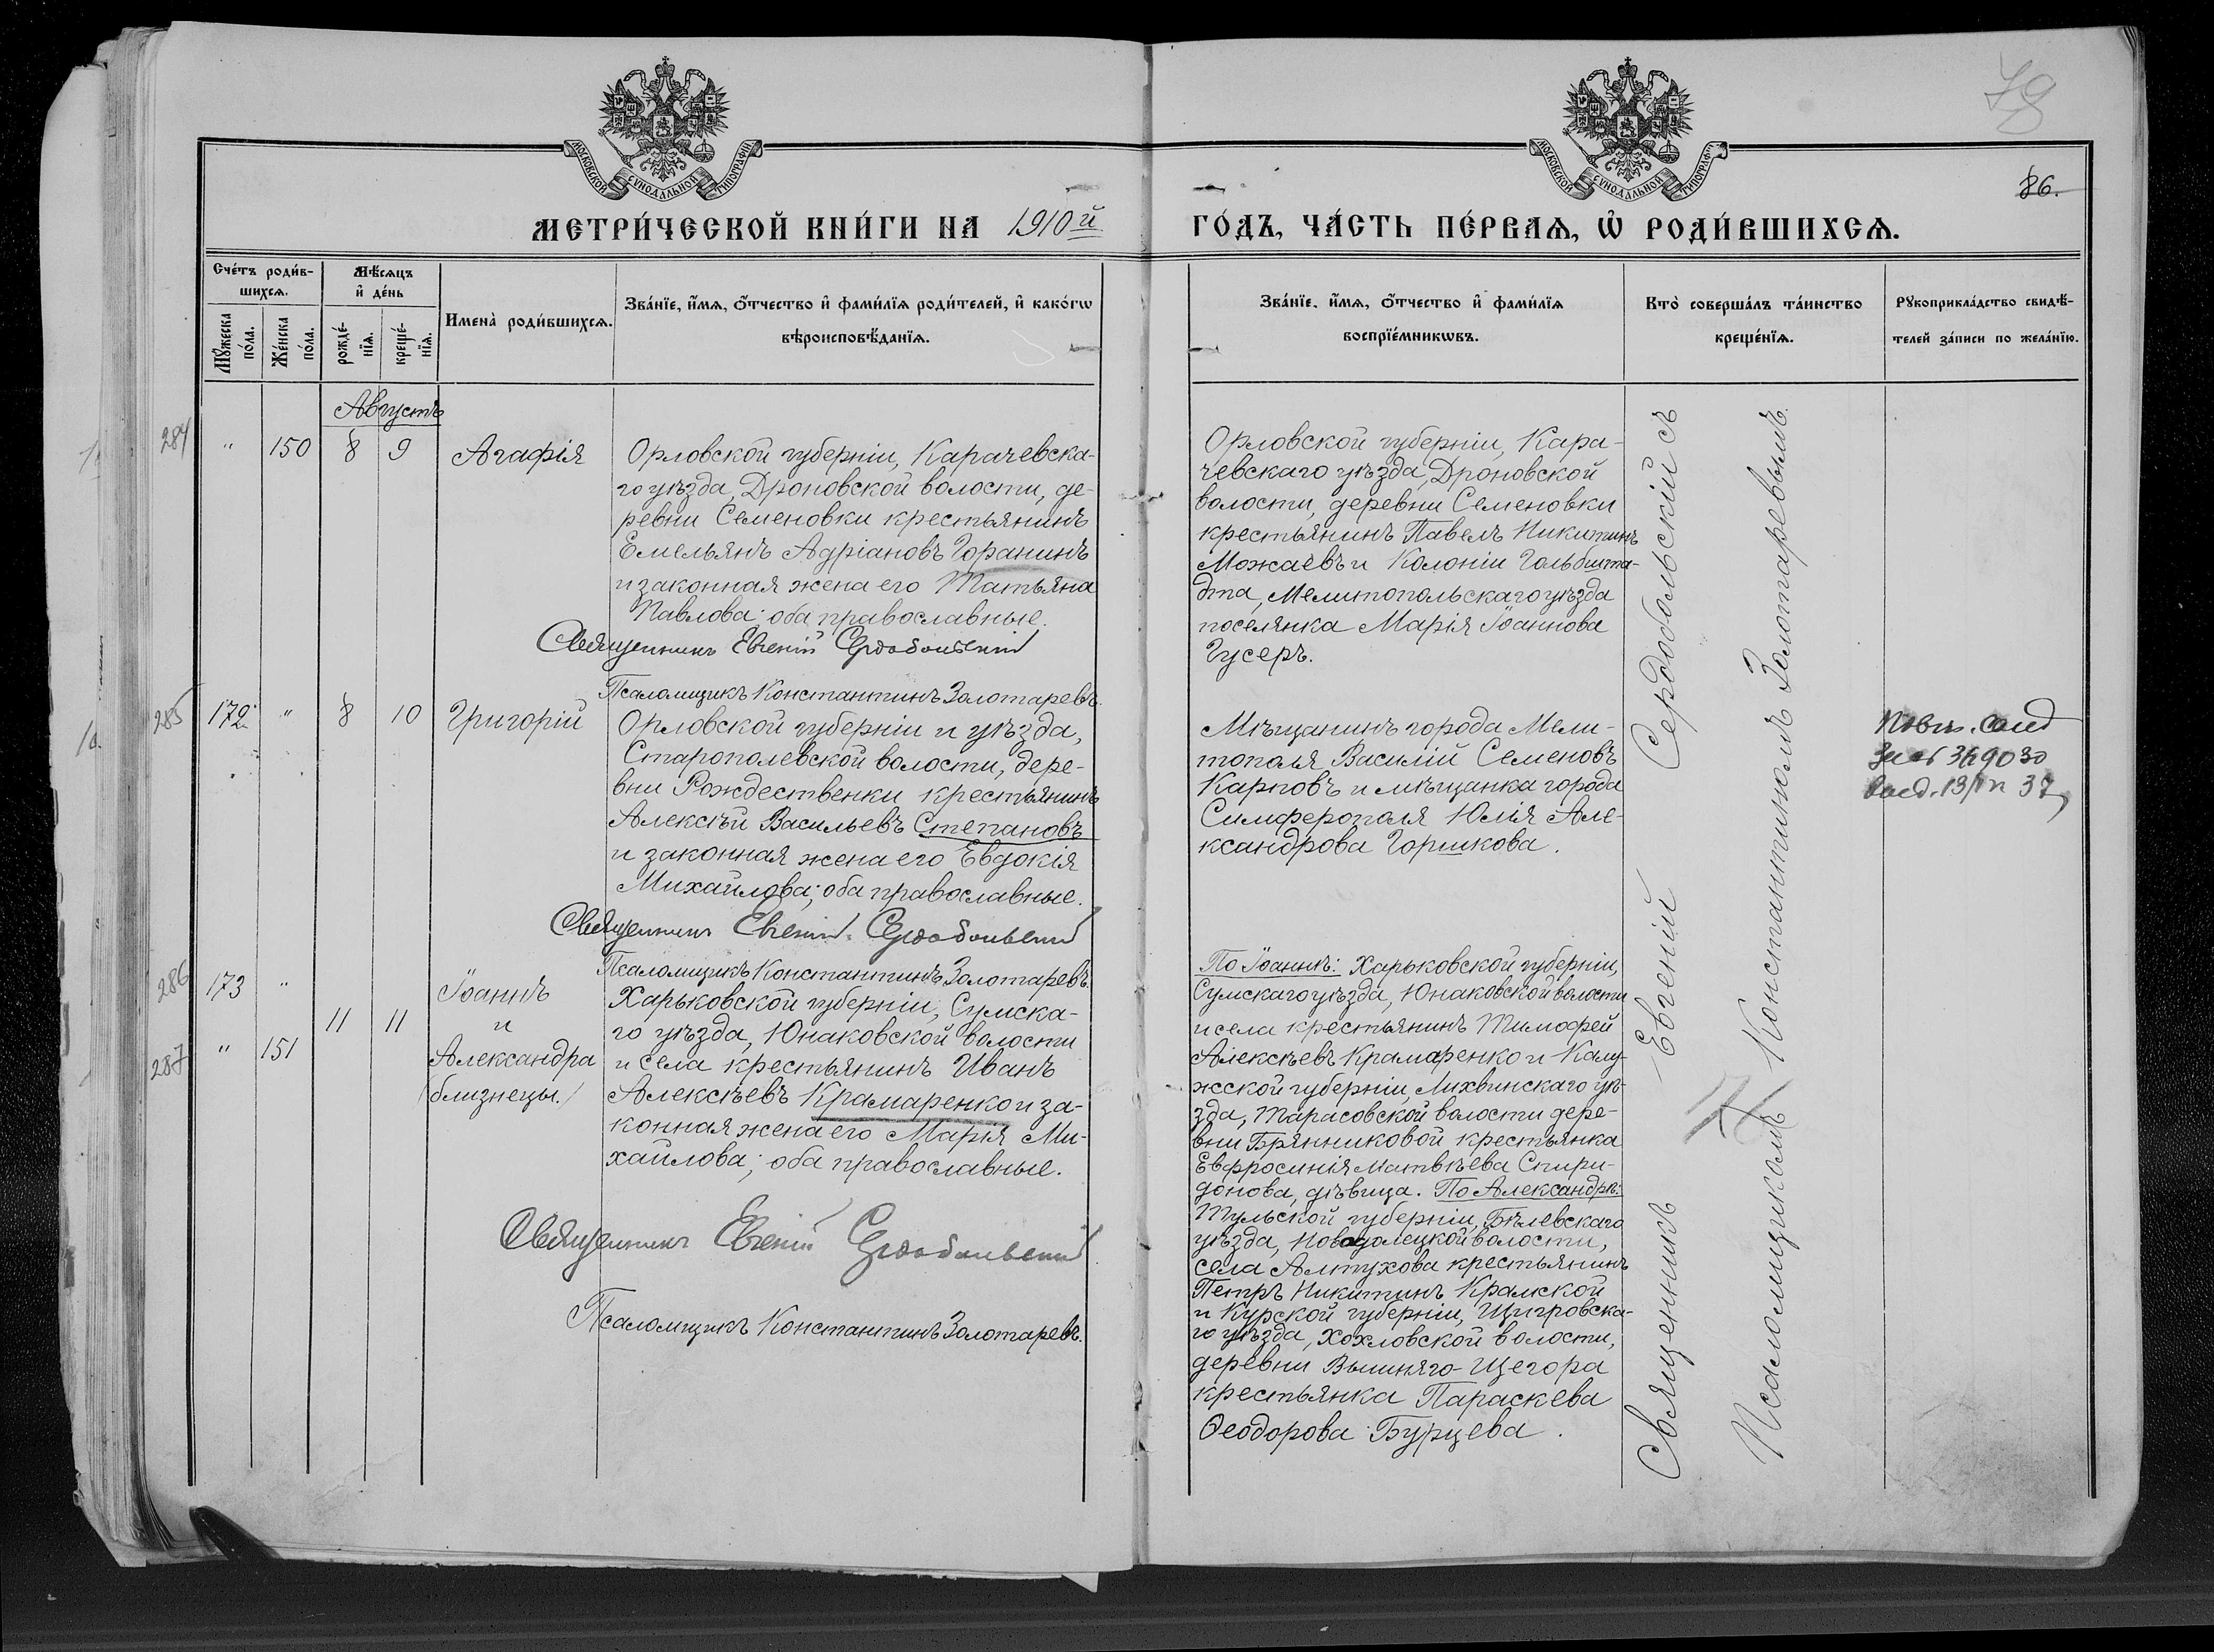 78
86.
МОСКОВСКОЙ СѴНОДАЛЬНОЙ ТИПОГРАФІИ
МОСКОВСКОЙ СѴНОДАЛЬНОЙ ТИПОГРАФІИ
МЕТРИ́ЧЕСКОЙ КНИ́ГИ НА 1910й
ГО́ДЪ, ЧА́СТЬ ПЕ́РВАѦ, Ѡ҆ РОДИ́ВШИХСѦ.
Сче́тъ роди́в-
шихсѧ.
Мꙋ́жеска
по́ла.
Же́нска
по́ла.
Мѣ́сѧцъ
и҆ де́нь
рожде́-
нїѧ.
креще́-
нїѧ.
Имена̀ роди́вшихсѧ.
Зва́нїе, и҆́мѧ, ѻ҆́тчество и҆ фами́лїѧ роди́телей, и҆ како́гѡ
вѣроисповѣ́данїѧ.
Зва́нїе, и҆́мѧ, ѻ҆́тчество и҆ фами́лїѧ
воспрїе́мникѡвъ.
Кто̀ соверша́лъ та́инство
креще́нїѧ.
Рꙋкоприкла́дство свидѣ́-
телей за́писи по жела́нїю.
Августъ
284 " 150 8 9 Агафія
Орловской губерніи, Карачевска-
го уѣзда, Дроновской волости, де-
ревни Семеновки крестьянинъ
Емельянъ Адріановъ Горанинъ
и законная жена его Татьяна
Павлова; оба православные.
Священникъ Евгеній Сердобольскій
Псаломщикъ Константинъ Золотаревъ.
Орловской губерніи, Кара-
чевскаго уѣзда, Дроновской
волости, деревни Семеновки
крестьянинъ Павелъ Никитинъ
Можаевъ и Колоніи Гольбшта-
дта, Мелитопольскаго уѣзда
поселянка Марія Іоаннова
Гусеръ.
285 172 " 8 10 Григорій
Орловской губерніи и уѣзда,
Старополевской волости, дере-
вни Рождественки крестьянинъ
Алексѣй Васильевъ Степановъ
и законная жена его Евдокія
Михайлова; оба православные.
Священникъ Евгеній Сердобольскій
Псаломщикъ Константинъ Золотаревъ.
Мѣщанинъ города Мели-
тополя Василій Семеновъ
Карповъ и мѣщанка города
Симферополя Юлія Але-
ксандрова Горшкова.
286 173 "
287 " 151
11 11
Іоаннъ
и
Александра
(близнецы.)
Харьковской губерніи, Сумска-
го уѣзда, Юнаковской волости
и села крестьянинъ Иванъ
Алексѣевъ Крамаренко и за-
конная жена его Марія Ми-
хайлова; оба православные.
Священникъ Евгеній Сердобольскій
Псаломщикъ Константинъ Золотаревъ.
По Іоаннѣ: Харьковской губерніи,
Сумскаго уѣзда, Юнаковской волости
и села крестьянинъ Тимофей
Алексѣевъ Крамаренко и Калу-
жской губерніи, Лихвинскаго уѣ-
зда, Тарасовской волости дере-
вни Брянниковой крестьянка
Евфросинія Матвѣева Спири-
донова, дѣвица. По Александрѣ:
Тульской губерніи, Бѣлевскаго
уѣзда, волости,
села Алтухова крестьянинъ
Петръ Никитинъ Крамской
и Курской губерніи, Щигровска-
го уѣзда, Хохловской волости,
деревни Вышняго-Щегора
крестьянка Параскева
Ѳеодорова Бурцева.
Священникъ Евгеній Сердобольскій съ
Псаломщикомъ Константиномъ Золотаревымъ.